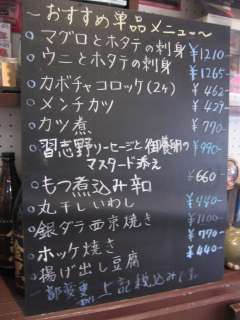 ～おすすめ単品メニュー～
○マグロとホタテの刺身 ¥1210
○ウニとホタテの刺身 ¥1265-
○カボチャコロッケ(2ヶ) ¥462-
○メンチカツ ¥429-
○カツ煮 ¥770-
○習志野ソーセージと ¥990-
マスタード添え
○もつ煮込み辛口 ¥660-
○丸干しいわし ¥440-
○銀ダラ西京焼き ¥1100
○ホッケ焼き ¥770-
○揚げ出し豆腐 ¥440-
上記税込みです。